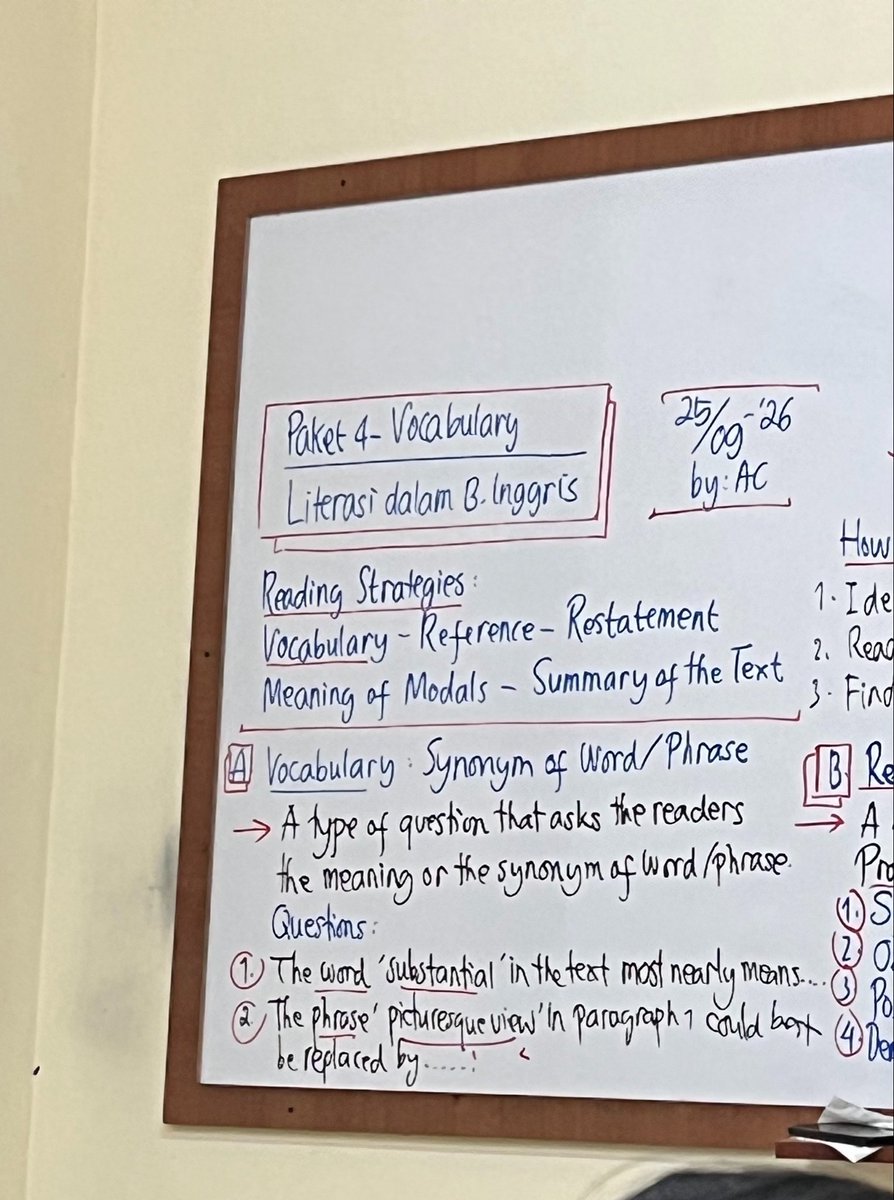 Paket 4 - Vocabulary
Literasi dalam B. Inggris
25/09-'26
by: AC
Reading Strategies:
Vocabulary - Reference - Restatement
Meaning of Modals - Summary of the Text
A Vocabulary: Synonym of Word/Phrase
→ A type of question that asks the readers
the meaning or the synonym of word/phrase.
Questions:
1. The word 'substantial' in the text most nearly means....
2. The phrase 'picturesque view' in paragraph 1 could best
be replaced by......
How
1. Ide
2. Read
3. Find
B. Re
→ A
Pro
1. S
2. O
3. Po
4. Dem